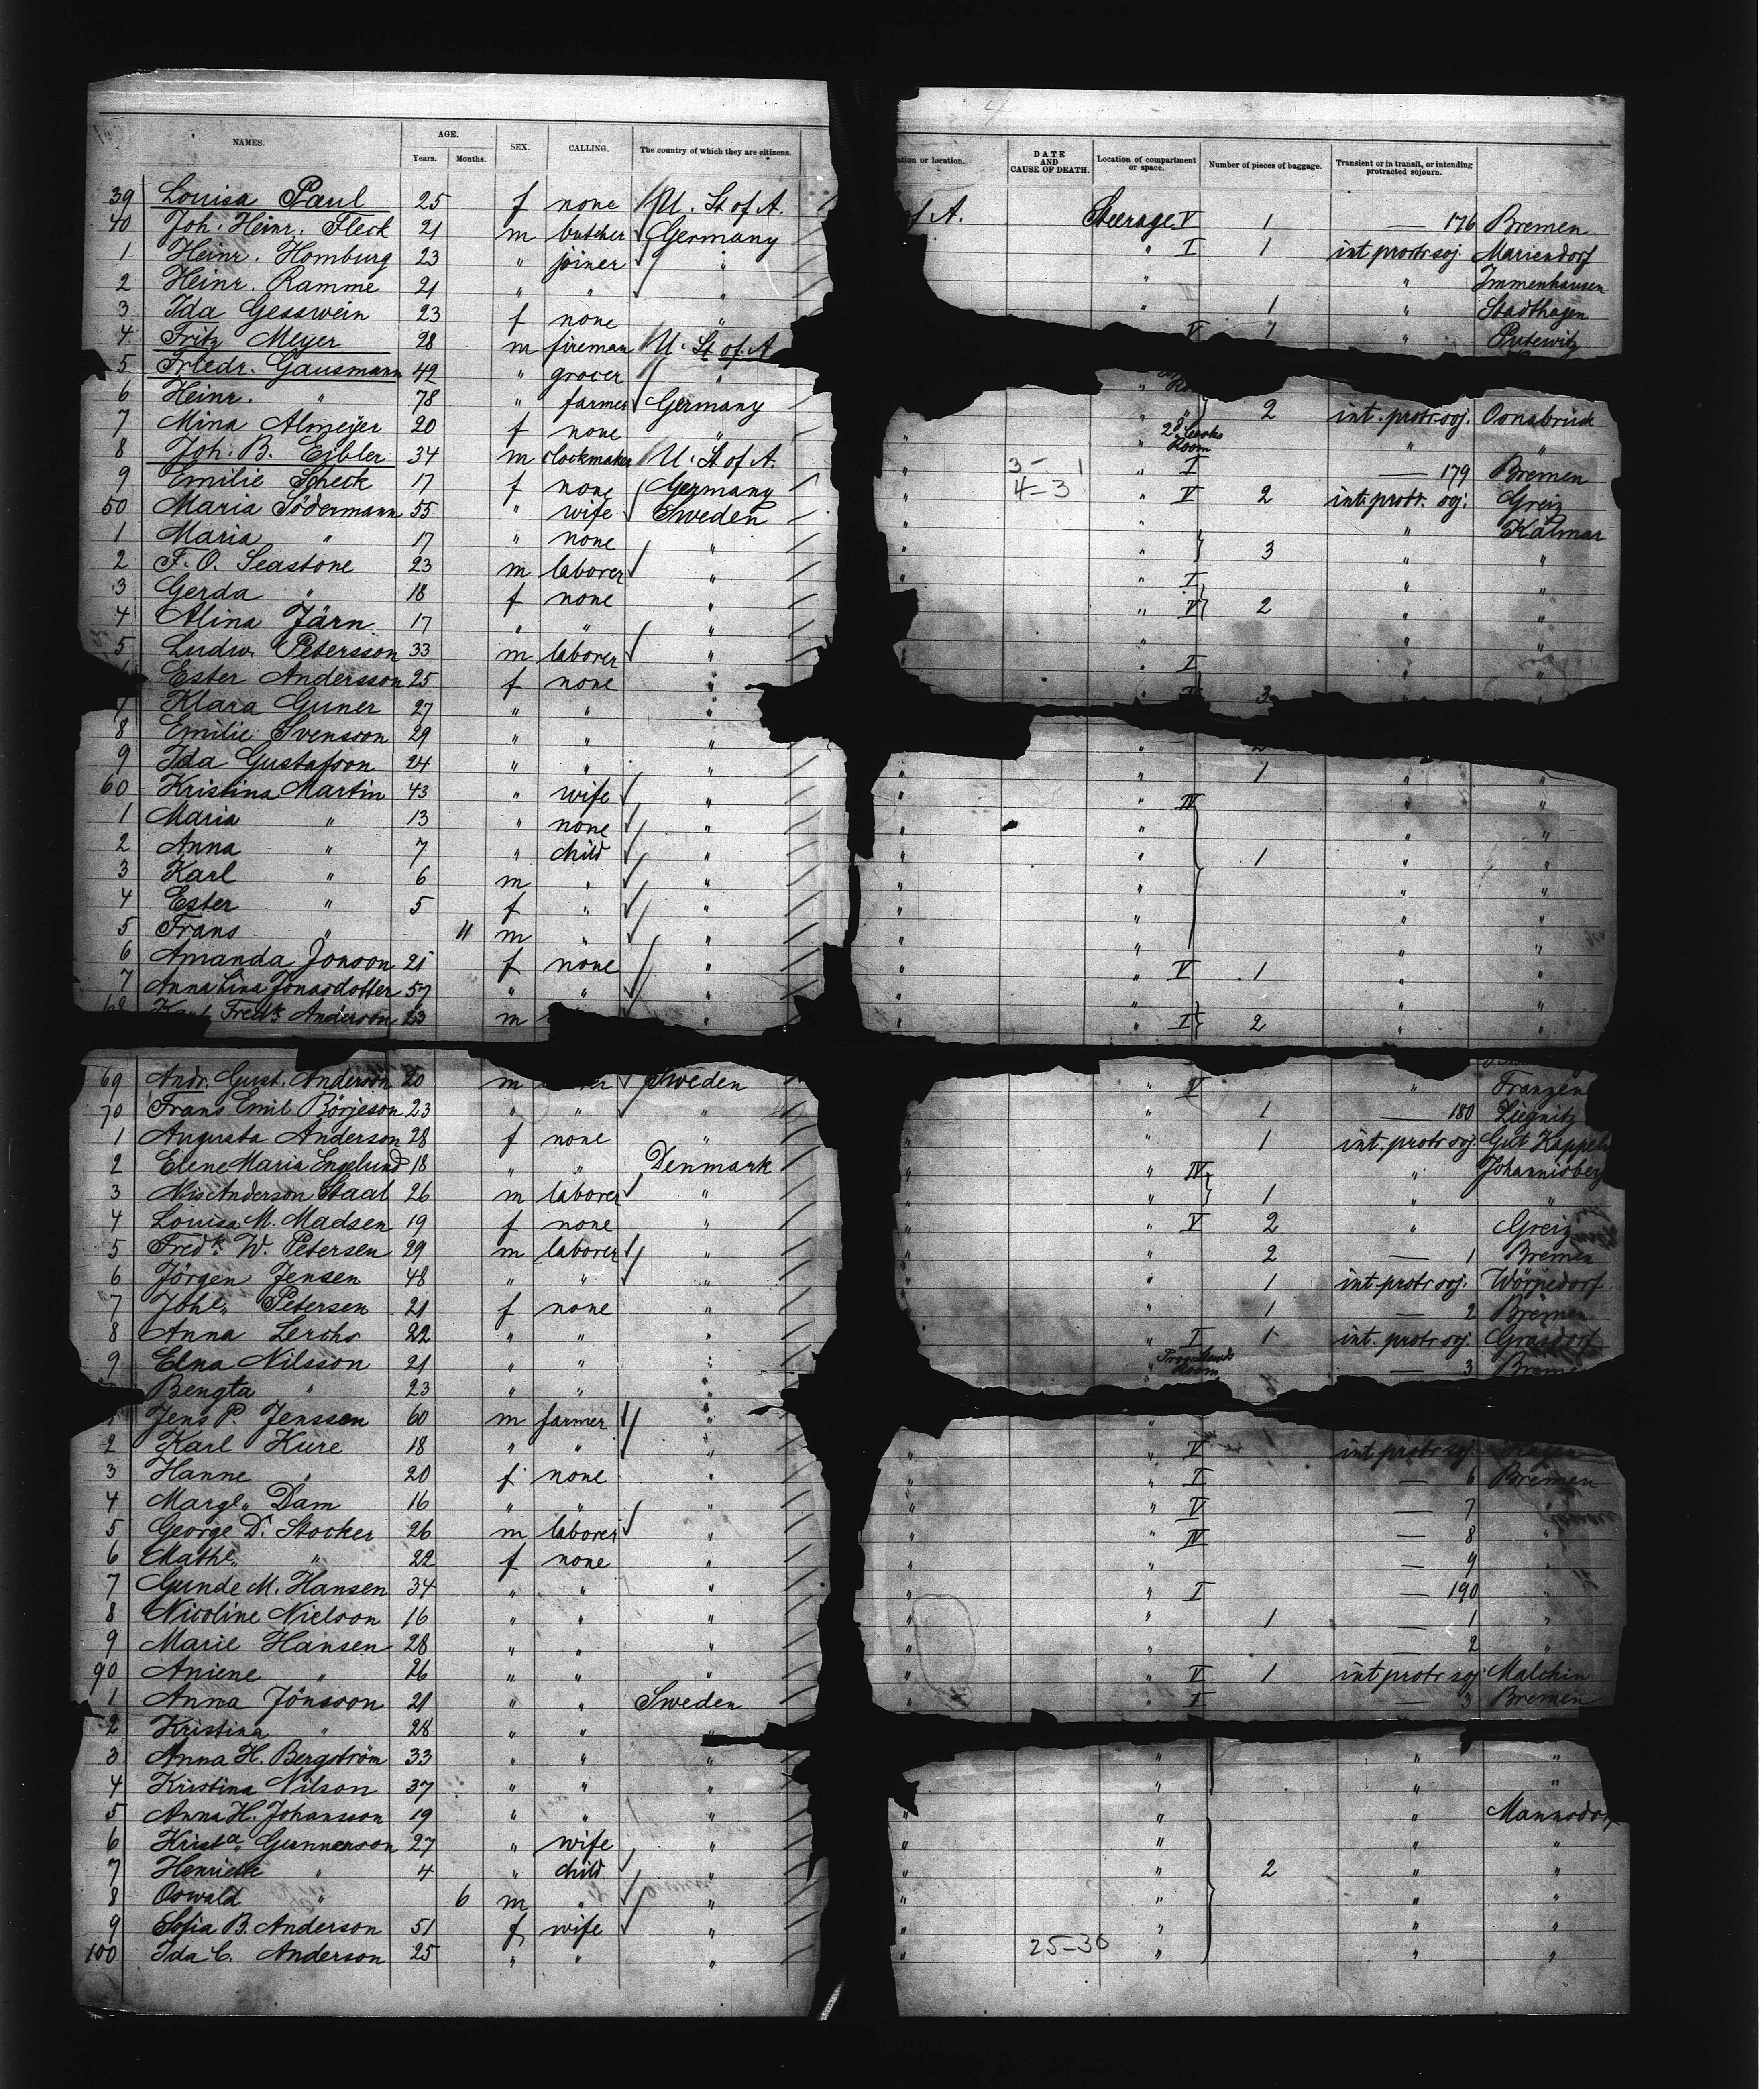 NAMES. AGE. SEX. CALLING. The country of which they are citizens.
Years. Months.
39 Louisa Paul 25 f none U. St of A.
40 Joh. Heinr. Fleck 21 m butcher Germany
1 Heinr. Homburg 23 " joiner "
2 Heinr. Ramme 21 " " "
3 Ida Gesswein 23 f none "
4 Fritz Meyer 28 m fireman U. St of A
5 Friedr. Gausmann 42 " grocer "
6 Heinr. " 78 " farmer Germany
7 Mina Almeyer 20 f none "
8 Joh. B. Eibler 34 m clockmaker U. St of A.
9 Emilie Scheck 17 f none Germany
50 Maria Södermann 55 " wife Sweden
1 Maria " 17 " none "
2 F. O. Seastone 23 m laborer "
3 Gerda " 18 f none "
4 Alina Järn 17 " " "
5 Ludw. Petersson 33 m laborer "
Ester Andersson 25 f none "
7 Klara Guner 27 " " "
8 Emilie Svensson 29 " " "
9 Ida Gustafson 24 " " "
60 Kristina Martin 43 " wife "
1 Maria " 13 " none "
2 Anna " 7 " child "
3 Karl " 6 m " "
4 Ester " 5 f " "
5 Frans " 11 m " "
6 Amanda Jonson 21 f none "
7 Anna Lina Jonasdotter 57 " " "
68 Fredk Anderson 23 m "
69 Andr. Gust. Anderson 20 m Sweden
70 Frans Emil Börjeson 23 " " "
1 Augusta Anderson 28 f none "
2 Elene Maria Englund 18 " " Denmark
3 Nis Anderson Staal 26 m laborer "
4 Louisa M. Madsen 19 f none "
5 Fredk W. Petersen 29 m laborer "
6 Jörgen Jensen 48 " " "
7 Johe Petersen 21 f none "
8 Anna Lerchs 22 " " "
9 Elna Nilsson 21 " " "
Bengta " 23 " " "
Jens P. Jenssen 60 m farmer "
2 Karl Kure 18 " " "
3 Hanne " 20 f none "
4 Marge Dam 16 " " "
5 George D. Stocker 26 m laborer "
6 Mathe " 22 f none "
7 Gunde M. Hansen 34 " " "
8 Nicoline Nielson 16 " " "
9 Marie Hansen 28 " " "
90 Aniene " 26 " " "
1 Anna Jönsson 21 " " Sweden
2 Kristina " 28 " " "
3 Anna H. Bergström 33 " " "
4 Kristina Nilson 37 " " "
5 Anna H. Johansson 19 " " "
6 Krista Gunnerson 27 " wife "
7 Henriette " 4 " child "
8 Oswald " 6 m " "
9 Sofia B. Anderson 51 f wife "
100 Ida C. Anderson 25 " " "
4
ation or location. DATE AND CAUSE OF DEATH. Location of compartment or space. Number of pieces of baggage. Transient or in transit, or intending protracted sojourn.
of A. Steerage V 1 — 176 Bremen
" I 1 int protr soj. Mariendorf
" " Immenhausen
" 1 " Stadthagen
V 1 "
Room
" " 2 int. protr. soj. Osnabrück
" 2d Cooks Room " "
" 3 – 1 " I — 179 Bremen
" 4 – 3 " V 2 int. protr. soj. Greiz
" " Kalmar
" " 3 " "
" " I " "
" V 2 " "
" " "
" I " "
" V 3 " "
" 2
" " 1 " "
" " IV " "
" " " "
" " 1 " "
" " " "
" " " "
" " " "
" " V 1 " "
" " " "
" " I 2 " "
" V " Franzen
" 1 — 180 Liegnitz
" " 1 int. protr soj. Gut Kappeln
" " IV " Johannisberg
" " 1 " "
" " V 2 " Greiz
" " 2 — 1 Bremen
" " 1 int protr soj. Wörpedorf
" " 1 — 2 Bremen
" I 1 int. protr soj. Grasdorf
" Room — 3 Bremen
" 1
" " V int protr soj.
" " I — 6 Bremen
" " V — 7 "
" " IV — 8 "
" " — 9 "
" " I — 190 "
" " 1 — 1 "
" " — 2 "
" " V 1 int protr soj. Malchin
" " I — 3 Bremen
" " "
" " "
" " " Mannsdorf
" " " "
" " 2 " "
" " " "
" " " "
" 25–30 " " "